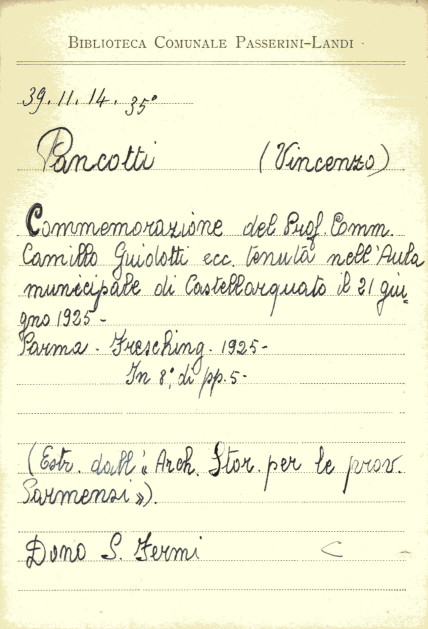 BIBLIOTECA COMUNALE PASSERINI-LANDI
39.11.14.35°
Pancotti (Vincenzo)
Commemorazione del Prof. Comm.
Camillo Guidotti ecc. tenuta nell'Aula
municipale di Castellarquato il 21 giu-
gno 1925-
Parma - Fresching. 1925-
In 8°, di pp. 5-
(Estr. dall'« Arch. Stor. per le prov.
Parmensi »).
Dono S. Fermi